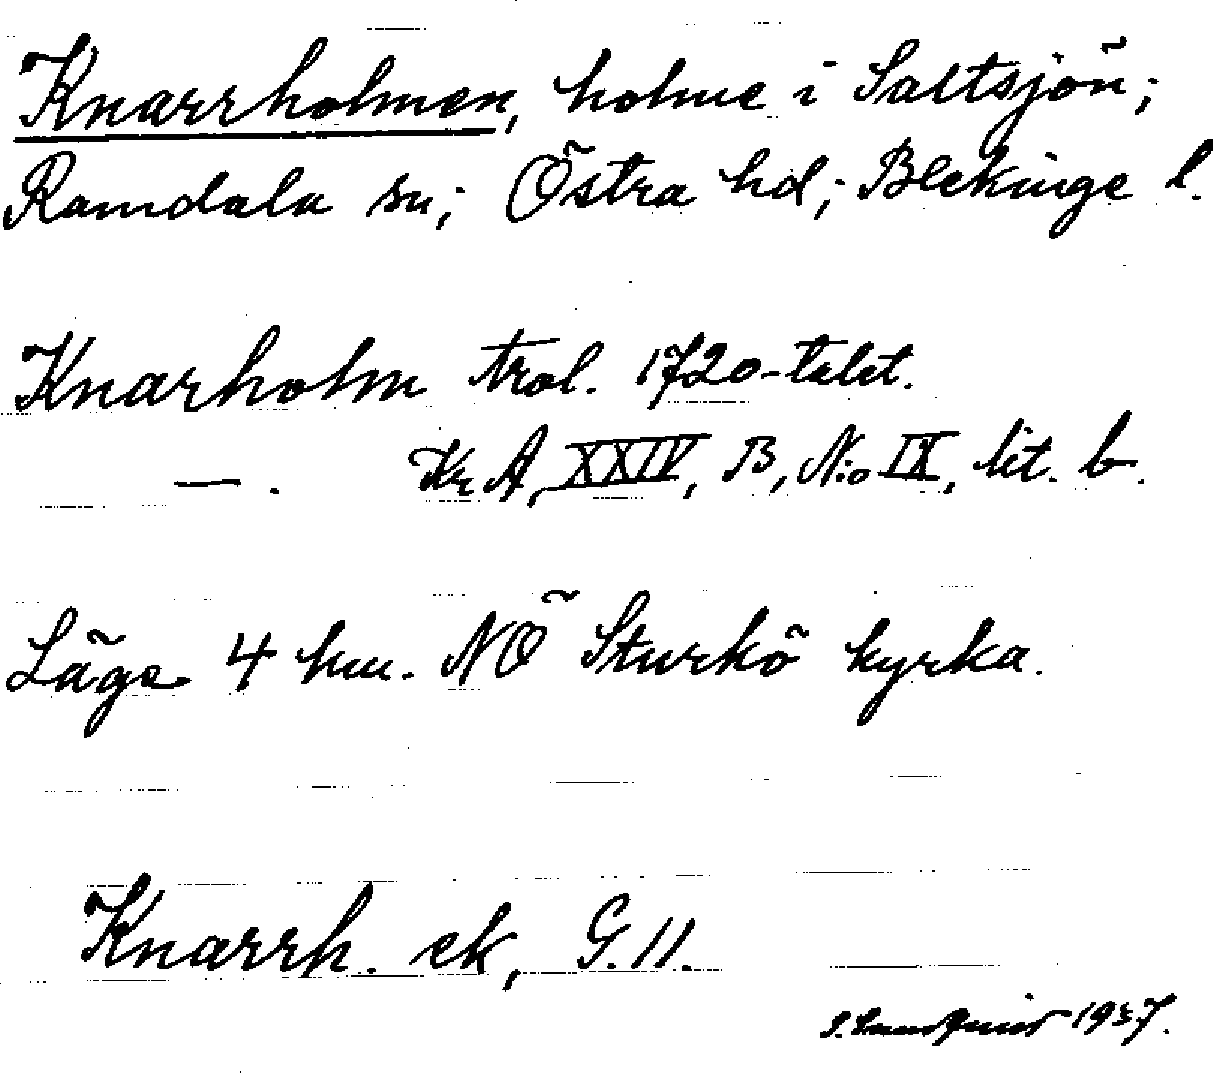 Knarrholmen, holme i Saltsjön;
Ramdala sn; Östra hd; Blekinge l.
Knarholm trol. 1720-talet.
—. Kr A, XXIV, B, N:o IX, lit. b.
Läge 4 km. NÖ Sturkö kyrka.
Knarrh. ek, G. 11.
S. 1937.